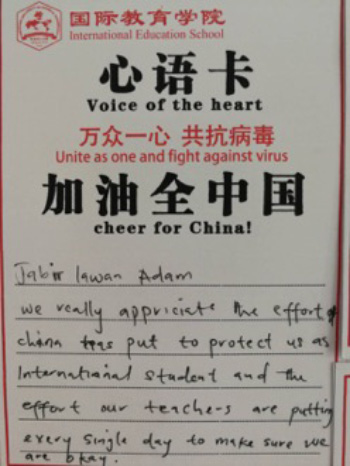 国际教育学院
International Education School
心语卡
Voice of the heart
万众一心 共抗病毒
Unite as one and fight against virus
加油全中国
cheer for China!
Jabir lawan Adam
we really appriciate the effort of
china put to protect us as
International student and the
effort our teachers are putting
every single day to make sure we
are okay.